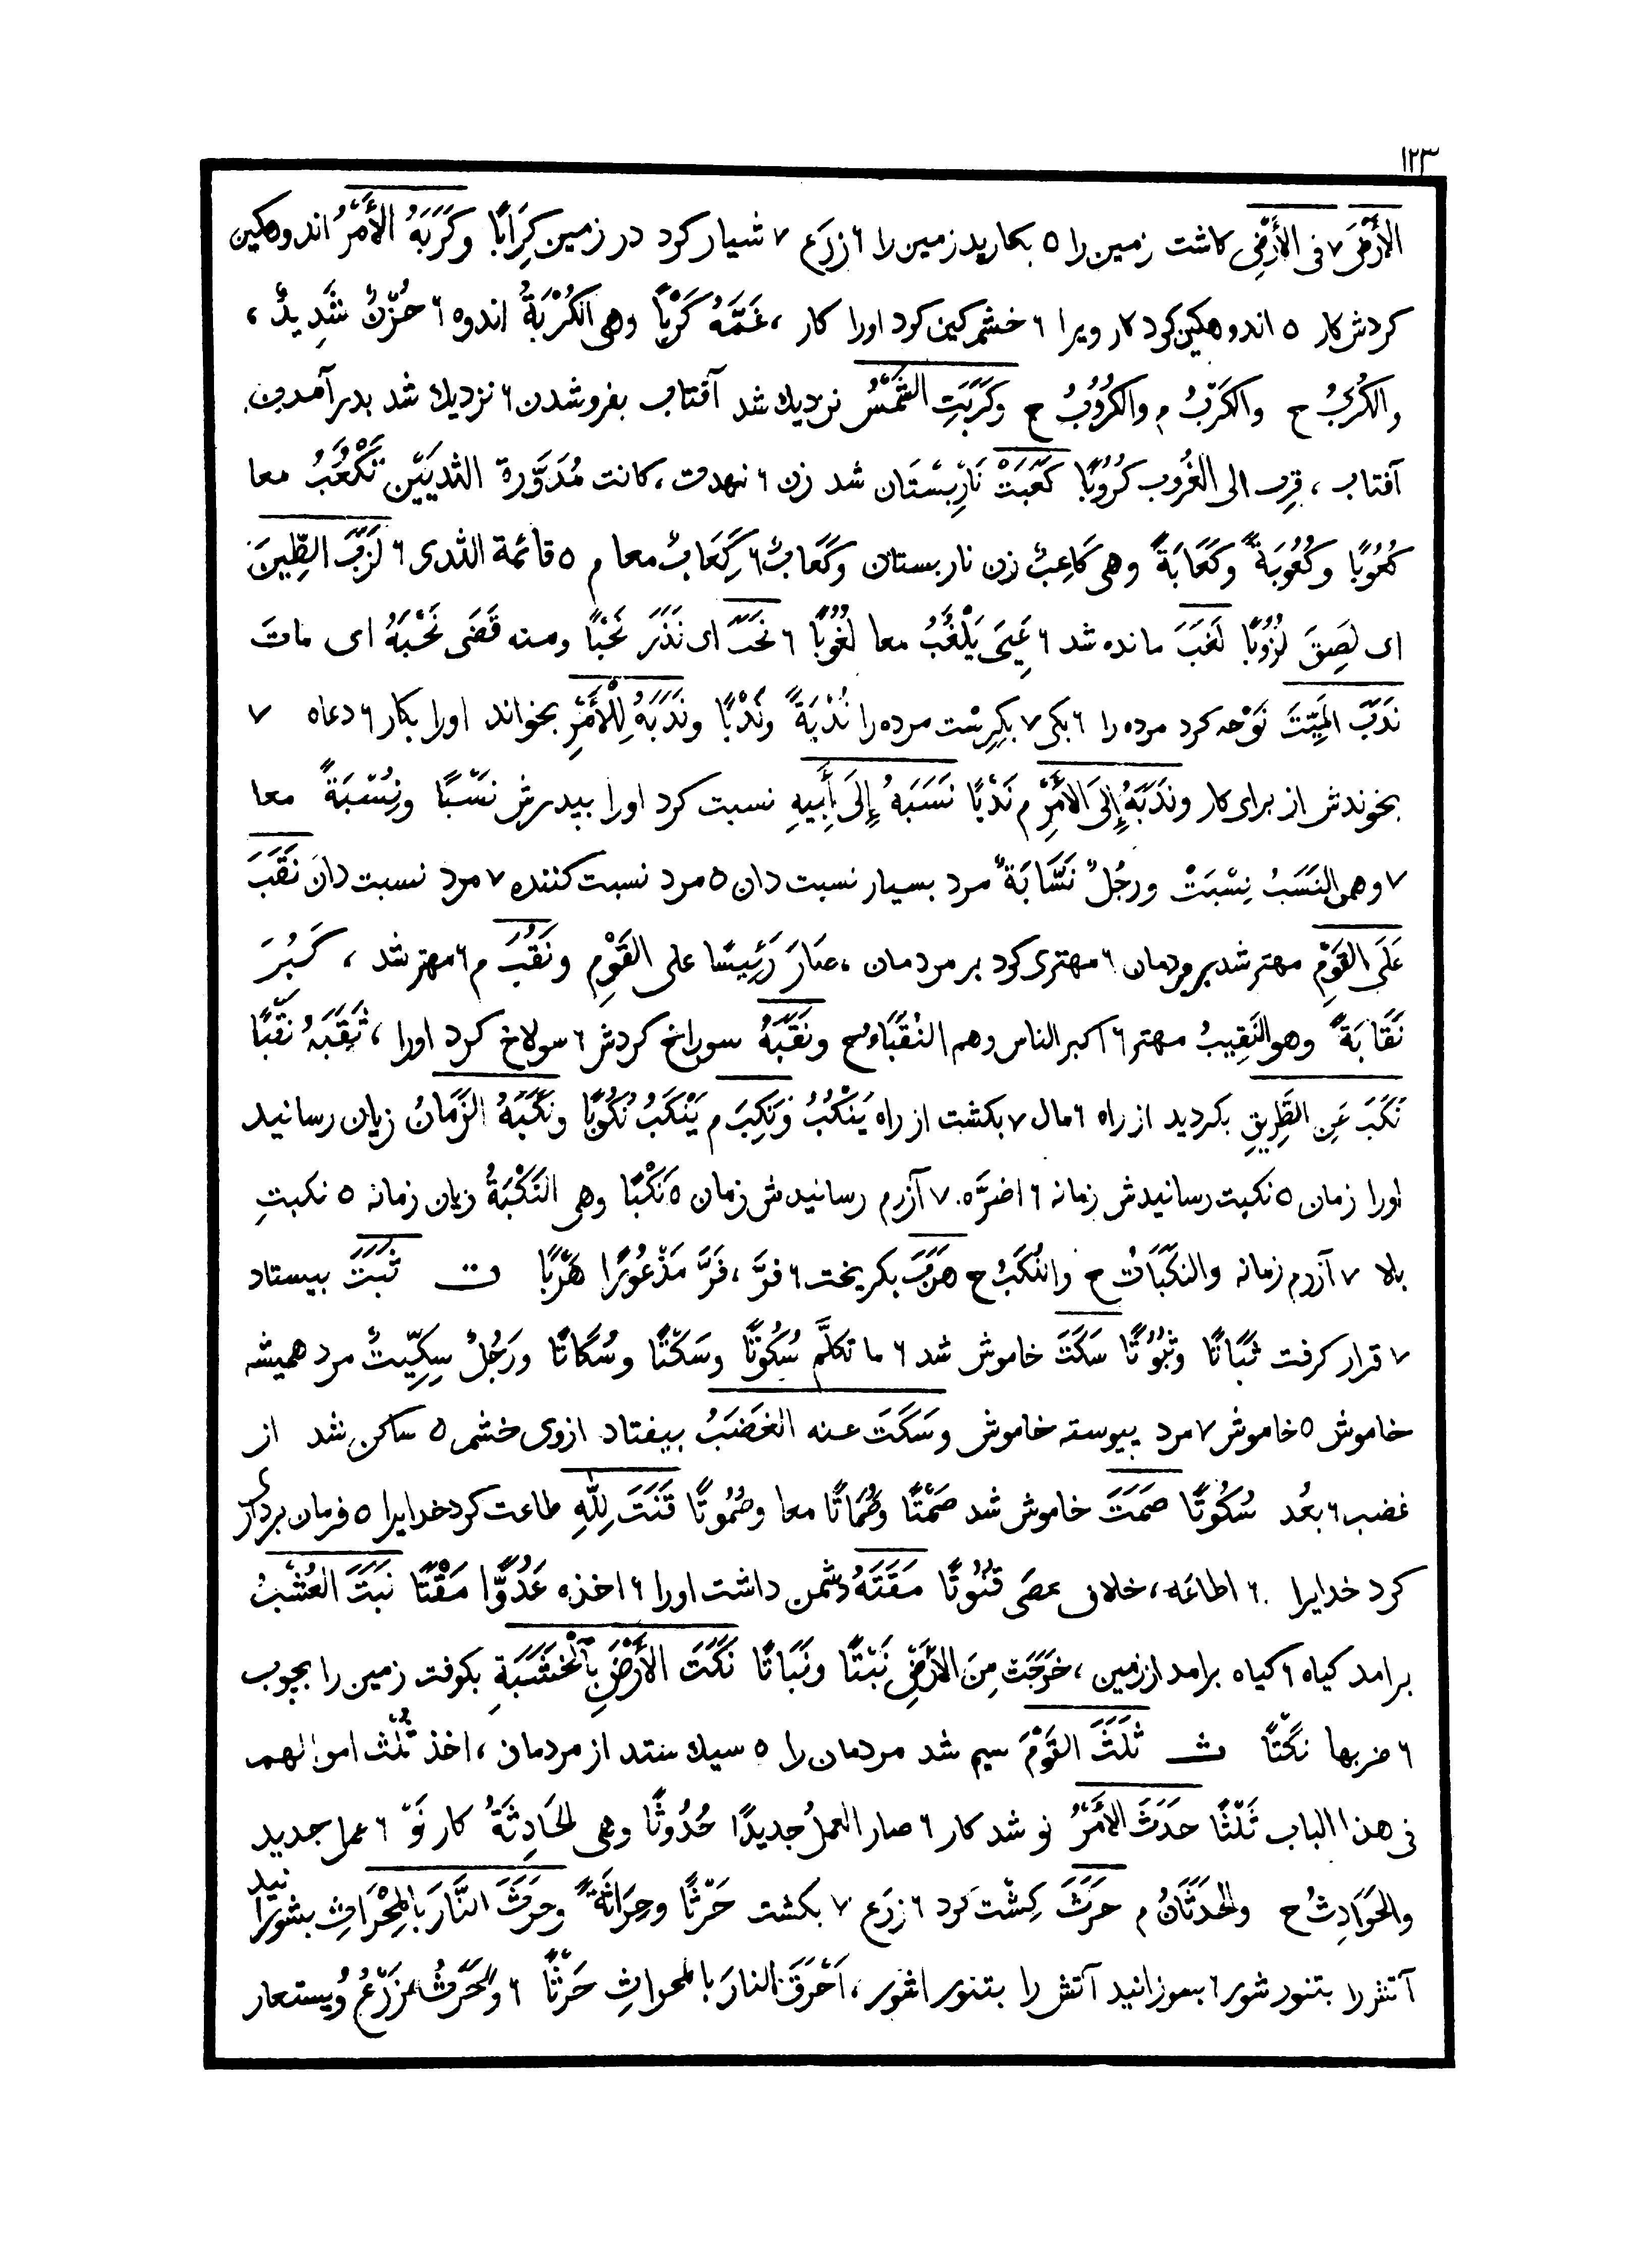 ١٢٣
الأَرْضَ ٧ فى الأَرْضِ كاشت زمين را ٥ بكاريد زمين را ٦ زرَع ٧ شيار كرد در زمين كِرَابًا وكَرَبَهُ الأَمْرُ اندوهكين
كردش كار ٥ اندوهكين كرد كار ويرا ٦ خشم كين كرد اورا كار ، غَمَّهُ كَرْبًا وهى الكُرْبَةُ اندوه ٦ حُزْنٌ شَدِيدٌ ،
والكُرَبُ ح والكَرْبُ م والكُرُوبُ ح وكَرَبَتِ الشَّمْسُ نزديك شد آفتاب بفروشدن ٦ نزديك شد بدرآمدن
آفتاب ، قرب الى الغُروب كُرُوبًا كَعَبَتْ نَارِبِسْتَان شد زن ٦ نهدت ، كانت مُدَوَّرة الثديَيْن تَكْعُبُ معا
كُعُوبًا وكُعُوبَةً وكَعَابَةً وهى كَاعِبٌ زن ناربستان وكَعَابٌ ٦ كِعَابٌ معا م ٥ قائمة الثدى ٦ لَزَبَ الطِّينَ
اى لَصِقَ لُزُوبًا لَغَبَ مانده شد ٦ عَيِىَ يَلْغُبُ معا لُغُوبًا ٦ نَحَبَ اى نَذَرَ نَحْبًا ومنه قَضَى نَحْبَهُ اى مات
نَدَبَ المَيِّتَ نَوْحه كرد مرده را ٦ بكى ٧ بكِرِيْست مرده را نُدْبَةً ونَدْبًا ونَدَبَهُ لِلْأَمْرِ بخواند اورا بكار ٦ دعاه ٧
بخوندش از براى كار ونَدَبَهُ إِلَى الأَمْرِ م نَدْبًا نَسَبَهُ إِلَى أَبِيهِ نسبت كرد اورا بپدرش نَسَبًا ونِسْبَةً معا
٧ وهى النَسَبُ نِسْبَتْ ورجُلٌ نَسَّابَةٌ مرد بسيار نسبت دان ٥ مرد نسبت كننده ٧ مرد نسبت دان نَقَبَ
عَلَى القَوْمِ مهتر شد بر مردمان ٦ مهترى كرد بر مردمان ، صَارَ رَئِيسًا على القَوْمِ ونَقُبَ م ٦ مهتر شد ، كَبُرَ
نَقَابَةً وهو النَقِيبُ مهتر ٦ اكبر الناس وهم النُقَبَاءُ ح ونَقَبَهُ سوراخ كردش ٦ سولاخ كرد اورا ، ثَقَبَهُ نَقْبًا
نَكَبَ عَنِ الطَّرِيقِ بكرديد از راه ٦ مال ٧ بكشت از راه يَنْكُبُ ونَكِبَ م يَنْكَبُ نُكُوبًا ونَكَبَهُ الزَّمَانُ زيان رسانيد
اورا زمان ٥ نكبت رسانيدش زمانه ٦ اضرَّه ٧ آزرم رسانيدش زمان ٥ نَكْبًا وهى النَكْبَةُ زيان زمانه ٥ نكبتِ
بلا ٧ آزرم زمانه والنكَبَاتُ ح والنُكَبُ ح هَرَبَ بكريخت ٦ فرَّ ، فَرَّ مَذْعُورًا هَرَبًا ت ثَبَتَ بيستاد
٧ قرار كرفت ثَبَاتًا وثُبُوتًا سَكَتَ خاموش شد ٦ ما تكلَّم سُكُوتًا وسَكْتًا وسُكَاتًا ورَجُلٌ سِكِّيتٌ مرد هميشه
خاموش ٥ خاموش ٧ مرد پيوسته خاموش وسَكَتَ عنه الغَضَبُ بيفتاد ازوى خشم ٥ ساكن شد از
غضب ٦ بعُد سُكُوتًا صَمَتَ خاموش شد صَمْتًا وصُمَاتًا معا وصُمُوتًا قَنَتَ لِلّٰهِ طاعت كرد خدايرا ٥ فرمان بردارى
كرد خدايرا ٦ اطاعَه ، خلاف عصَى قُنُوتًا مَقَتَهُ دشمن داشت اورا ٦ اخذه عَدُوًّا مَقْتًا نَبَتَ العُشْبُ
برامد كياه ٦ كياه برامد از زمين ، خرَجَت مِنَ الأَرْضِ نَبْتًا ونَبَاتًا نَكَتَ الأَرْضَ بِالْخَشَبَةِ بكوفت زمين را بچوب
٦ ضربها نَكْتًا ث ثَلَثَ القَوْمَ سيم شد مردمان را ٥ سيك ستد از مردمان ، اخذ ثُلُث اموالهم
فى هذا الباب ثَلْثًا حَدَثَ الأَمْرُ نو شد كار ٦ صار العملُ جديدًا حُدُوثًا وهى الحَادِثَةُ كار نَوْ ٦ عمل جديد
والحَوَادِثُ ح والحَدَثَانُ م حَرَثَ كِشْت كرد ٦ زرَع ٧ بكشت حَرْثًا وحِرَاثَةً وحَرَثَ النَّارَ بالمِحْرَاثِ بشورانيد
آتش را بتنور شور ٦ بسوزانيد آتش را بتنور اشور ، اَحْرَقَ النارَ بالمحراثِ حَرْثًا ٦ والحَرْثُ الزَرْعُ ويُستعار